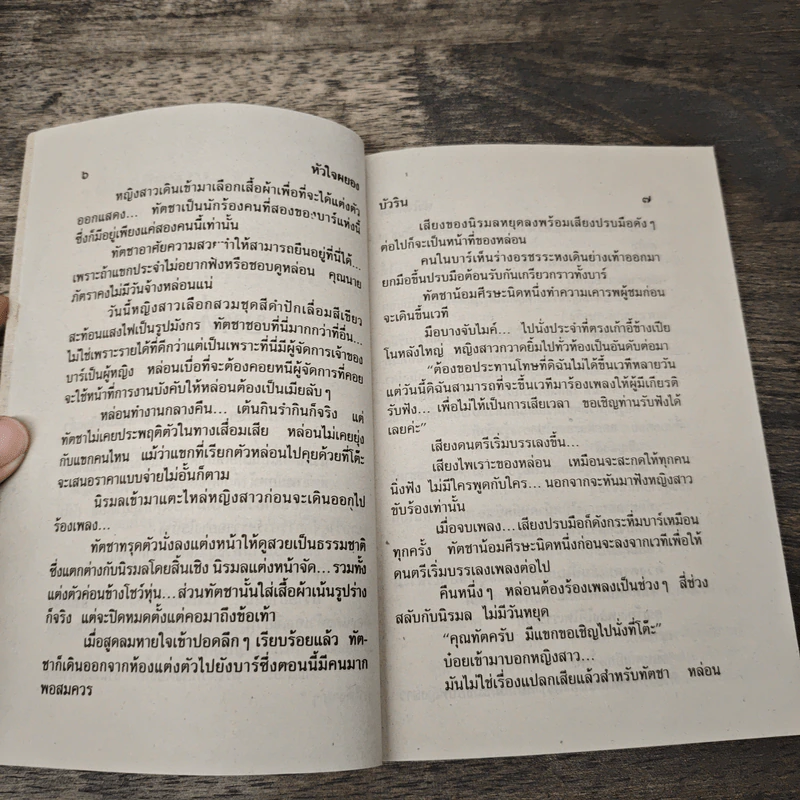 ๖
หัวใจผยอง
หญิงสาวเดินเข้ามาเลือกเสื้อผ้าเพื่อที่จะได้แต่งตัว
ออกแสดง... ทัตชาเป็นนักร้องคนที่สองของบาร์แห่งนี้
ซึ่งก็มีอยู่เพียงแค่สองคนนี้เท่านั้น
ทัตชาอาศัยความสวย ทำให้สามารถยืนอยู่ที่นี่ได้...
เพราะถ้าแขกประจำไม่อยากฟังหรือชอบดูหล่อน คุณนาย
ภัตราคงไม่มีวันจ้างหล่อนแน่
วันนี้หญิงสาวเลือกสวมชุดสีดำปักเลื่อมสีเขียว
สะท้อนแสงไฟเป็นรูปมังกร ทัตชาชอบที่นี่มากกว่าที่อื่น...
ไม่ใช่เพราะรายได้ที่ดีกว่าแต่เป็นเพราะที่นี่มีผู้จัดการเจ้าของ
บาร์เป็นผู้หญิง หล่อนเบื่อที่จะต้องคอยหนีผู้จัดการที่คอย
จะใช้หน้าที่การงานบังคับให้หล่อนต้องเป็นเมียลับๆ
หล่อนทำงานกลางคืน... เต้นกินรำกินก็จริง แต่
ทัตชาไม่เคยประพฤติตัวในทางเสื่อมเสีย หล่อนไม่เคยยุ่ง
กับแขกคนไหน แม้ว่าแขกที่เรียกตัวหล่อนไปคุยด้วยที่โต๊ะ
จะเสนอราคาแบบจ่ายไม่อั้นก็ตาม
นิรมลเข้ามาแตะไหล่หญิงสาวก่อนจะเดินออกไป
ร้องเพลง...
ทัตชาทรุดตัวนั่งลงแต่งหน้าให้ดูสวยเป็นธรรมชาติ
ซึ่งแตกต่างกับนิรมลโดยสิ้นเชิง นิรมลแต่งหน้าจัด...รวมทั้ง
แต่งตัวค่อนข้างโชว์หุ่น...ส่วนทัตชานั้นใส่เสื้อผ้าเน้นรูปร่าง
ก็จริง แต่จะปิดหมดตั้งแต่คอมาถึงข้อเท้า
เมื่อสูดลมหายใจเข้าปอดลึกๆ เรียบร้อยแล้ว ทัต-
ชาก็เดินออกจากห้องแต่งตัวไปยังบาร์ซึ่งตอนนี้มีคนมาก
พอสมควร
บัวริน
๗
เสียงของนิรมลหยุดลงพร้อมเสียงปรบมือดังๆ
ต่อไปก็จะเป็นหน้าที่ของหล่อน
คนในบาร์เห็นร่างอรชรระหงเดินย่างเท้าออกมา
ยกมือขึ้นปรบมือต้อนรับกันเกรียวกราวทั้งบาร์
ทัตชาน้อมศีรษะนิดหนึ่งทำความเคารพผู้ชมก่อน
จะเดินขึ้นเวที
มือบางจับไมค์... ไปนั่งประจำที่ตรงเก้าอี้ข้างเปีย
โนหลังใหญ่ หญิงสาวกวาดยิ้มไปทั่วห้องเป็นอันดับต่อมา
“ต้องขอประทานโทษที่ดิฉันไม่ได้ขึ้นเวทีหลายวัน
แต่วันนี้ดิฉันสามารถที่จะขึ้นเวทีมาร้องเพลงให้ผู้มีเกียรติ
รับฟัง... เพื่อไม่ให้เป็นการเสียเวลา ขอเชิญท่านรับฟังได้
เลยค่ะ”
เสียงดนตรีเริ่มบรรเลงขึ้น...
เสียงไพเราะของหล่อน เหมือนจะสะกดให้ทุกคน
นิ่งฟัง ไม่มีใครพูดกับใคร... นอกจากจะหันมาฟังหญิงสาว
ขับร้องเท่านั้น
เมื่อจบเพลง...เสียงปรบมือก็ดังกระหึ่มบาร์เหมือน
ทุกครั้ง ทัตชาน้อมศีรษะนิดหนึ่งก่อนจะลงจากเวทีเพื่อให้
ดนตรีเริ่มบรรเลงเพลงต่อไป
คืนหนึ่งๆ หล่อนต้องร้องเพลงเป็นช่วงๆ สี่ช่วง
สลับกับนิรมล ไม่มีวันหยุด
“คุณทัตครับ มีแขกขอเชิญไปนั่งที่โต๊ะ”
บ๋อยเข้ามาบอกหญิงสาว...
มันไม่ใช่เรื่องแปลกเสียแล้วสำหรับทัตชา หล่อน